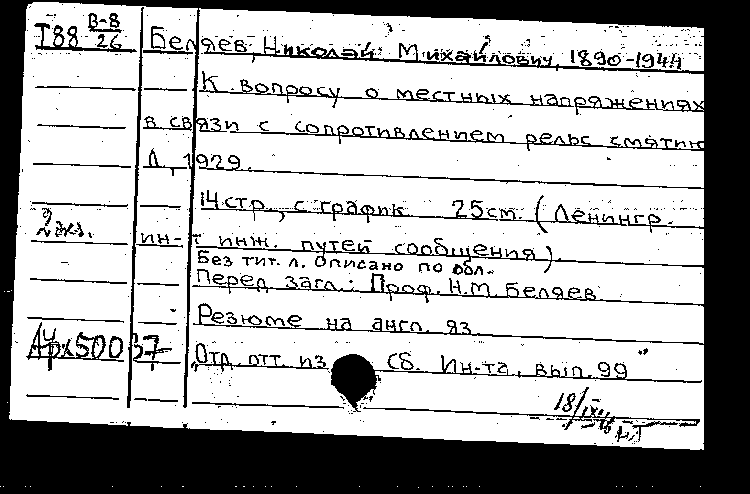 В-8
Т88 26 Беляев, Николай Михайлович, 1890-1944
К вопросу о местных напряжениях
в связи с сопротивлением рельс смятию
Л., 1929.
14 стр., с график. 25 см. (Ленингр.
2 экз. ин-т инж. путей сообщения).
Без тит. л. Описано по обл.
Перед загл.: Проф. Н.М. Беляев
Резюме на англ. яз.
Арх500 37 Отд. отт. из Сб. Ин-та, вып. 99
18/IX